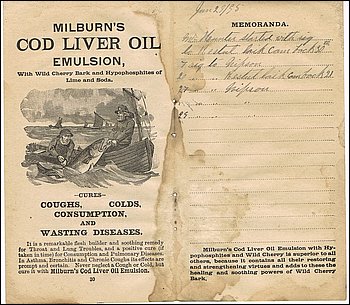 MILBURN'S
COD LIVER OIL
EMULSION,
With Wild Cherry Bark and Hypophosphites of
Lime and Soda.
—CURES—
COUGHS, COLDS,
CONSUMPTION,
AND
WASTING DISEASES.
It is a remarkable flesh builder and soothing remedy
for Throat and Lung Troubles, and a positive cure (if
taken in time) for Consumption and Pulmonary Diseases.
In Asthma, Bronchitis and Chronic Coughs its effects are
prompt and certain. Never neglect a Cough or Cold, but
cure it with Milburn's Cod Liver Oil Emulsion.
20
MEMORANDA.
started with
to
7 to
"
27 "
29
Milburn's Cod Liver Oil Emulsion with Hy-
pophosphites and Wild Cherry is superior to all
others, because it contains all their restoring
and strengthening virtues and adds to these the
healing and soothing powers of Wild Cherry
Bark.